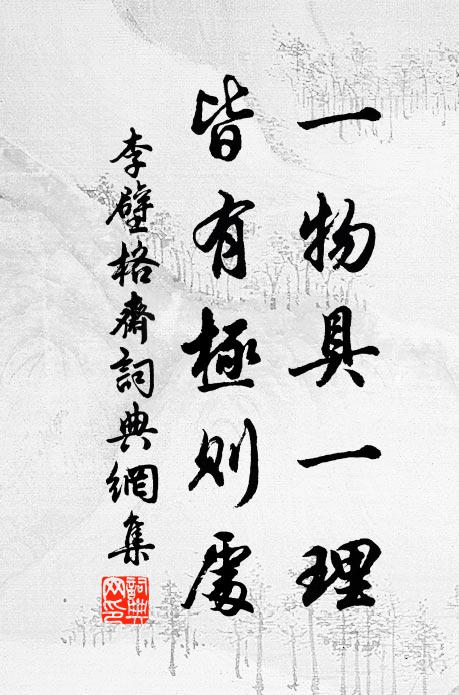 一物具一理
皆有極則處
李壁格齋詞典網集
詞典網印